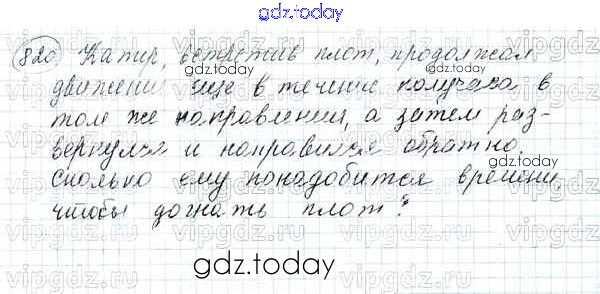 gdz.today
820 Катер, встретив плот, продолжал
gdz.today
движение еще в течение получаса в
том же направлении, а затем раз-
вернулся и направился обратно.
gdz.today
Сколько ему понадобится времени,
чтобы догнать плот?
gdz.today